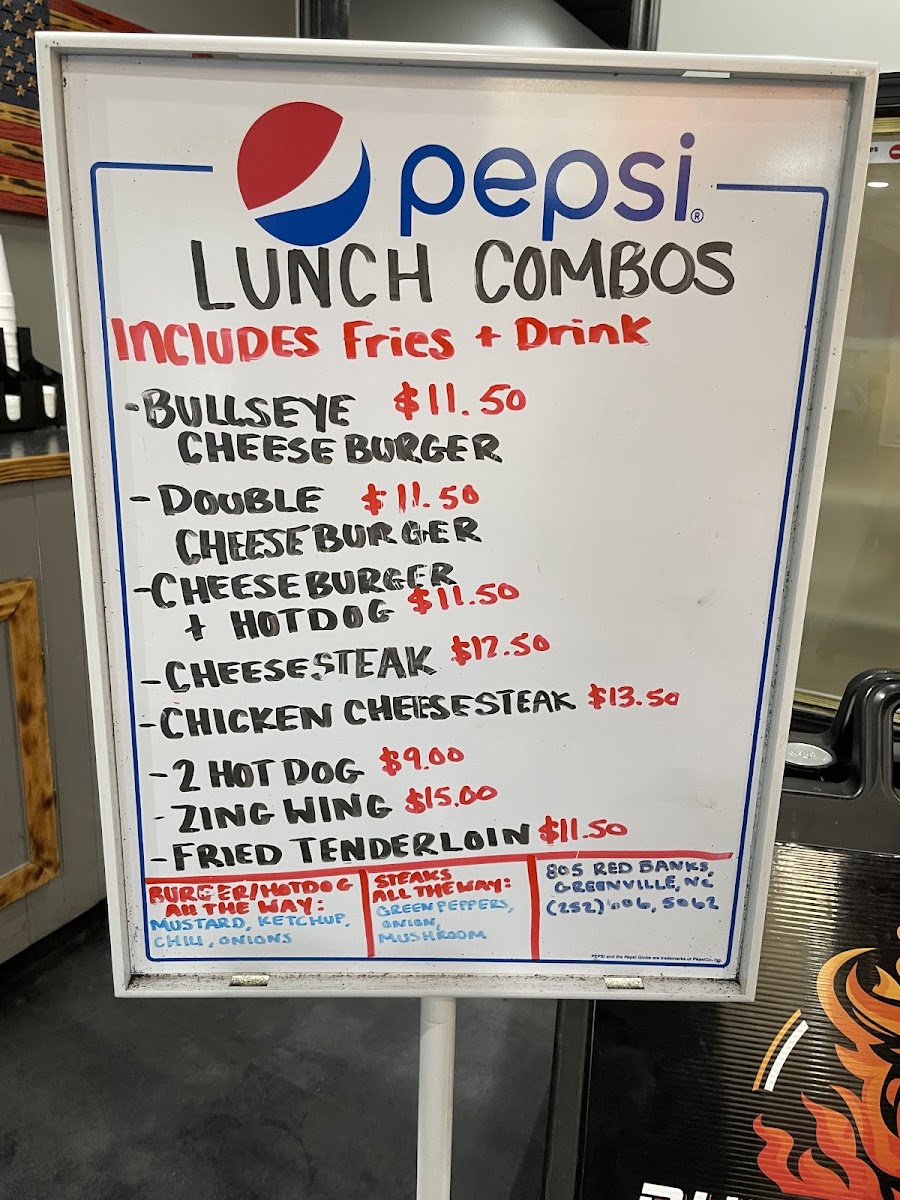 pepsi®
LUNCH COMBOS
INCLUDES Fries + Drink
-BULLSEYE $11.50
CHEESE BURGER
-DOUBLE $11.50
CHEESE BURGER
-CHEESE BURGER
+ HOTDOG $11.50
-CHEESESTEAK $12.50
-CHICKEN CHEESESTEAK $13.50
-2 HOT DOG $9.00
-ZING WING $15.00
-FRIED TENDERLOIN $11.50
BURGER/HOTDOG
ALL THE WAY:
MUSTARD, KETCHUP,
CHILI, ONIONS
STEAKS
ALL THE WAY:
GREEN PEPPERS,
ONION,
MUSHROOM
805 RED BANKS,
GREENVILLE, NC
(252) 606, 5062
PEPSI and the Pepsi Globe are trademarks of PepsiCo, Inc.